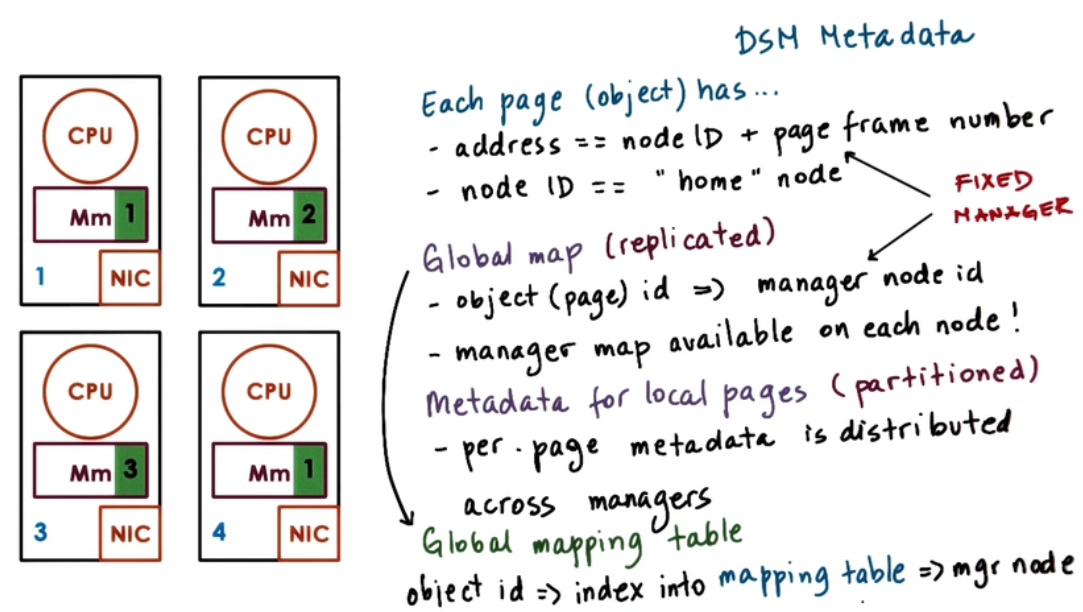 DSM Metadata
CPU
Mm 1
1 NIC
CPU
Mm 2
2 NIC
CPU
Mm 3
3 NIC
CPU
Mm 1
4 NIC
Each page (object) has...
- address == node ID + page frame number
- node ID == "home" node
FIXED
MANAGER
Global map (replicated)
- object (page) id => manager node id
- manager map available on each node!
Metadata for local pages (partitioned)
- per-page metadata is distributed
across managers
Global mapping table
object id => index into mapping table => mgr node